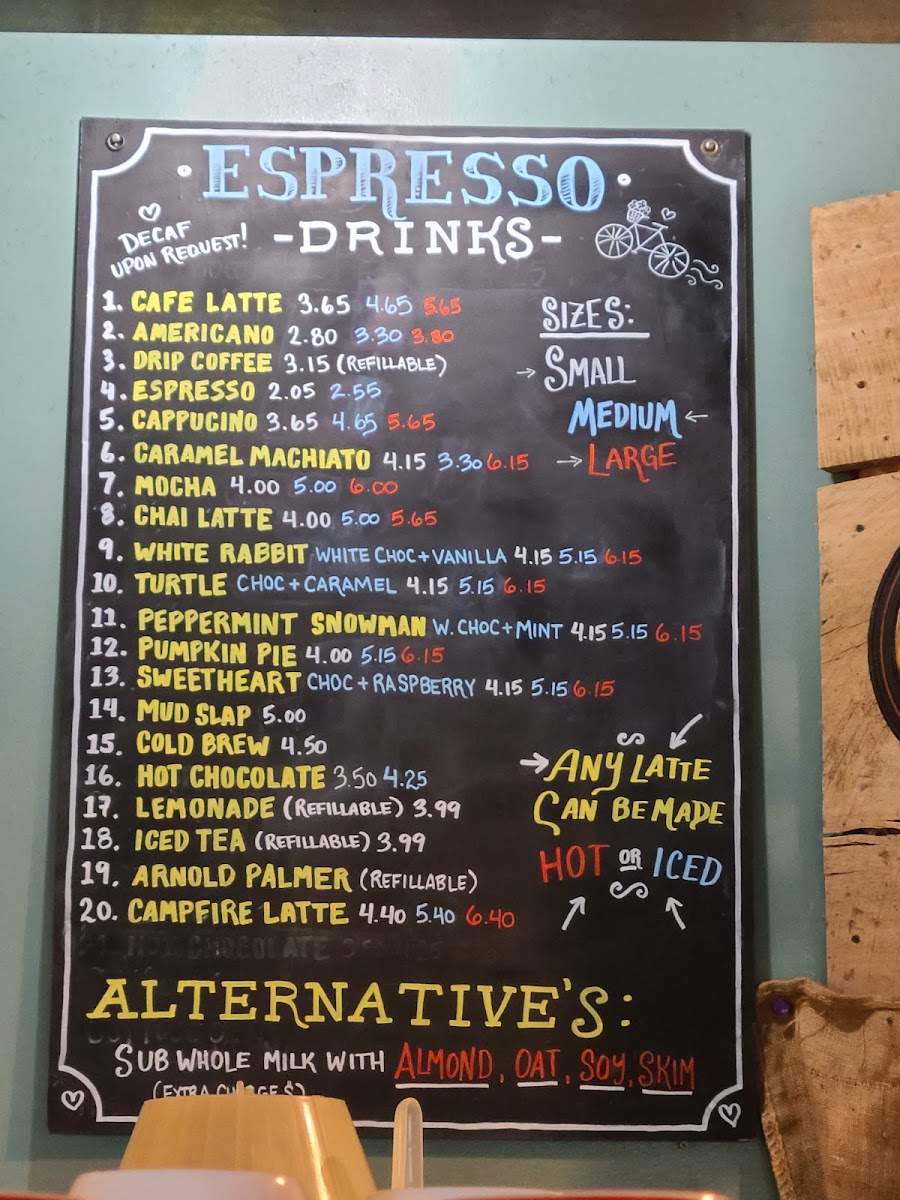 ESPRESSO
-DRINKS-
DECAF
UPON REQUEST!
1. CAFE LATTE 3.65 4.65 5.65
2. AMERICANO 2.80 3.30 3.80
3. DRIP COFFEE 3.15 (REFILLABLE)
4. ESPRESSO 2.05 2.55
5. CAPPUCINO 3.65 4.65 5.65
6. CARAMEL MACHIATO 4.15 3.30 6.15
7. MOCHA 4.00 5.00 6.00
8. CHAI LATTE 4.00 5.00 5.65
9. WHITE RABBIT WHITE CHOC + VANILLA 4.15 5.15 6.15
10. TURTLE CHOC + CARAMEL 4.15 5.15 6.15
11. PEPPERMINT SNOWMAN W. CHOC + MINT 4.15 5.15 6.15
12. PUMPKIN PIE 4.00 5.15 6.15
13. SWEETHEART CHOC + RASPBERRY 4.15 5.15 6.15
14. MUD SLAP 5.00
15. COLD BREW 4.50
16. HOT CHOCOLATE 3.50 4.25
17. LEMONADE (REFILLABLE) 3.99
18. ICED TEA (REFILLABLE) 3.99
19. ARNOLD PALMER (REFILLABLE)
20. CAMPFIRE LATTE 4.40 5.40 6.40
SIZES:
SMALL
MEDIUM
LARGE
ANY LATTE
CAN BE MADE
HOT OR ICED
ALTERNATIVE'S:
SUB WHOLE MILK WITH ALMOND, OAT, SOY, SKIM
(EXTRA CHARGE $)